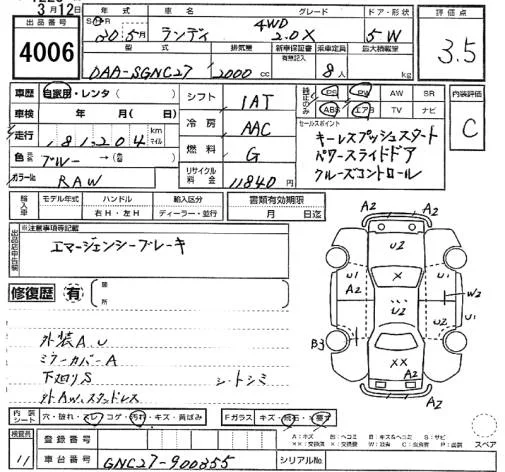 3月12日
出品番号 年式 車名 グレード ドア・形状 評価点
4006 20.5月 ランディ 4WD 2.0X 5W 3.5
型式 排気量 新車保証書 有無記入 乗車定員 最大積載量
DAA-SGNC27 2000 cc 8人 kg
車歴 自家用・レンタ ( ) シフト 1AT 純正のみ PS PW AW SR 内装評価
車検 年 月( 日) ABS エアB TV ナビ C
走行 181,204 km マイル 冷房 AAC セールスポイント
キーレスプッシュスタート
色 ブルー → ( ) 燃料 G パワースライドドア
カラーNo. RAW リサイクル料金 11840円 クルーズコントロール
輸入車 モデル年式 ハンドル 輸入区分 書類有効期限
右H・左H ディーラー・並行 月 日迄
※注意事項等記載
エマージェンシーブレーキ
修復歴 有 箇所
外装A.U
ミラーカバーA
下廻りS シートシミ
外AW.スタッドレス
A2 A2
U2
U1 X U1
A2 W2
U2 U1
U2
B3 XX
A2 A2
内装シート 穴・破れ・スレ・コゲ・汚れ・キズ・黄ばみ Fガラス キズ・飛石・ スペア
検査員 登録番号
11 車台番号 GNC27-900355 シリアルNo